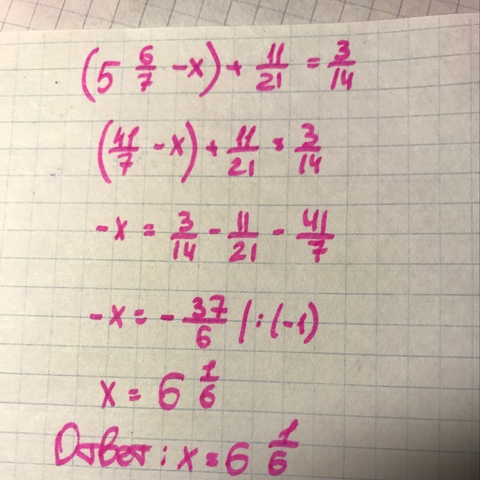 (5 6/7 - x) + 11/21 = 3/14
(41/7 - x) + 11/21 = 3/14
-x = 3/14 - 11/21 - 41/7
-x = - 37/6 | : (-1)
x = 6 1/6
Ответ: x = 6 1/6